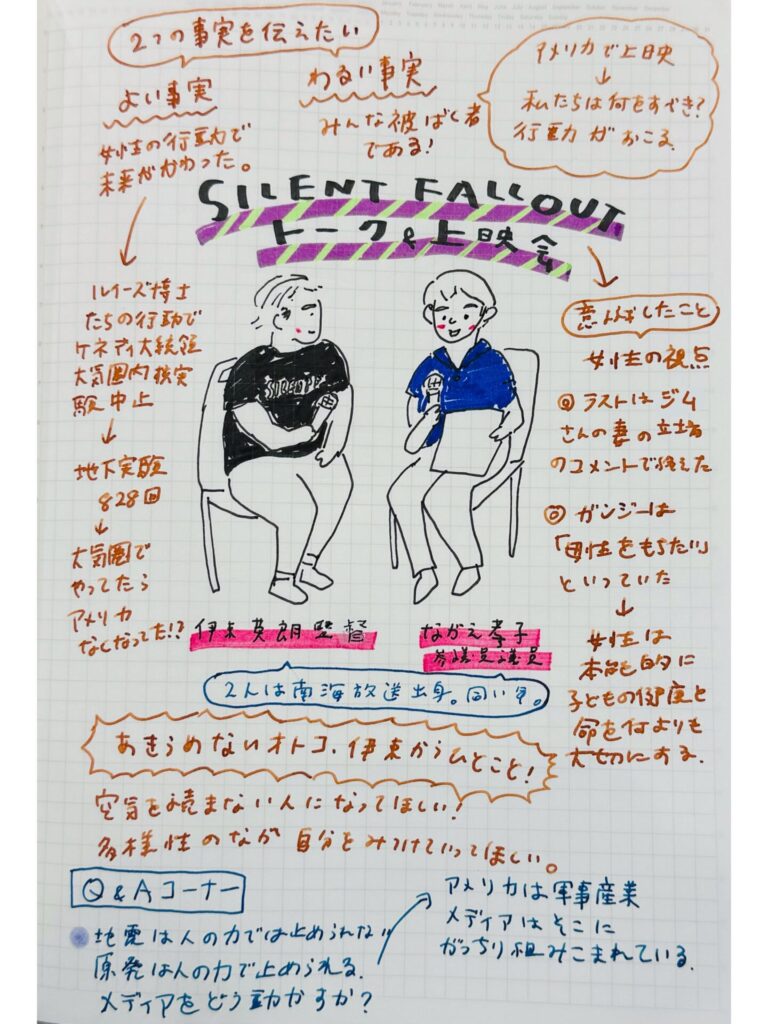 2つの事実を伝えたい
よい事実
女性の行動で
未来がかわった。
わるい事実
みんな被ばく者
である!
アメリカで上映
↓
私たちは何をすべき?
行動がおこる
SILENT FALLOUT
トーク&上映会
ルイーズ博士
たちの行動で
ケネディ大統領
大気圏内核実
験中止
↓
地下実験
828回
↓
大気圏で
やってたら
アメリカ
なくなってた!?
意識したこと
女性の視点
◎ ラストはジム
さんの妻の立場
のコメントで終えた
◎ ガンジーは
「母性をもちたい」
といっていた
↓
女性は
本能的に
子どもの健康と
命を何よりも
大切にする.
伊東英朗監督
ながえ孝子
参議員議員
2人は南海放送出身。同い年。
あきらめないオトコ、伊東からひとこと!
空気を読まない人になってほしい!
多様性のなか 自分をみつけていってほしい。
Q&Aコーナー
地震は人の力では止められない
原発は人の力で止められる.
メディアをどう動かすか?
アメリカは軍事産業
メディアはそこに
がっちり組みこまれている.